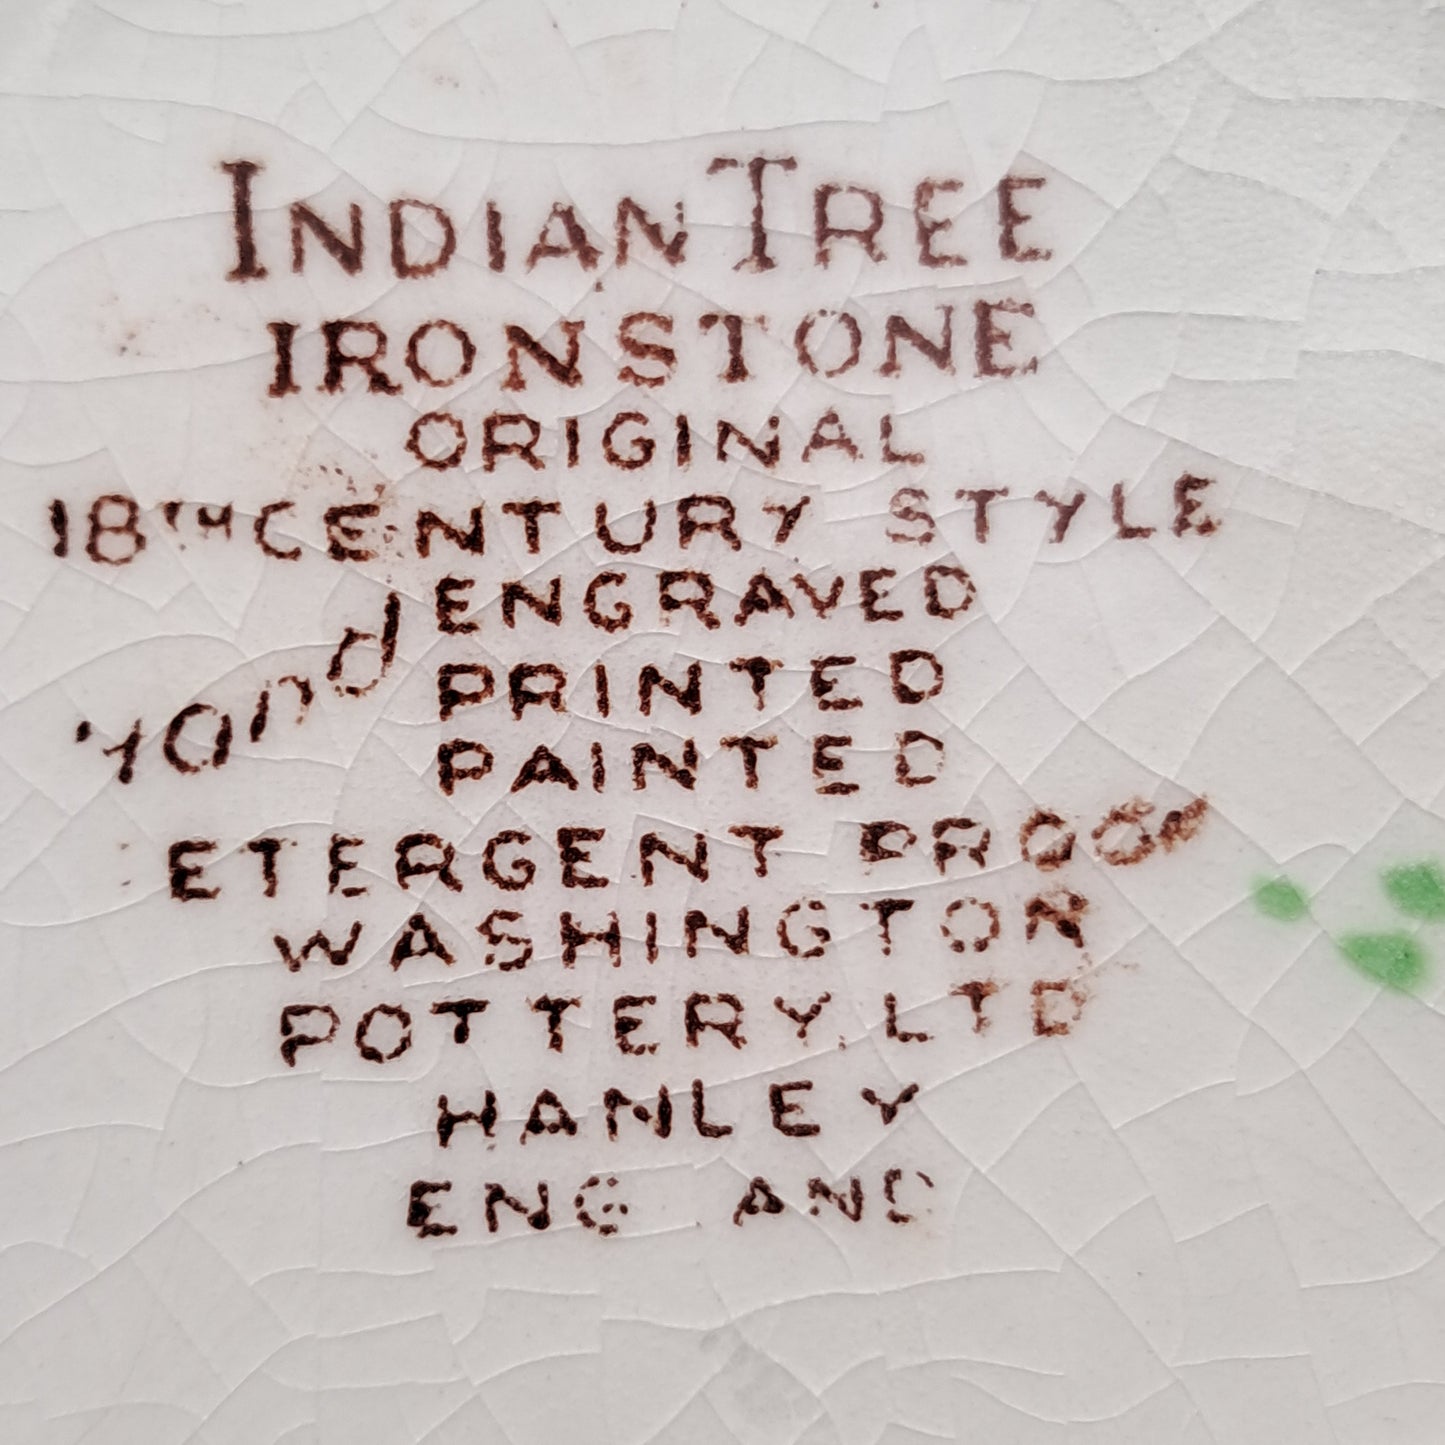 INDIAN TREE
IRONSTONE
ORIGINAL
18TH CENTURY STYLE
Hand ENGRAVED
PRINTED
PAINTED
ETERGENT PROOF
WASHINGTON
POTTERY. LTD
HANLEY
ENG AND